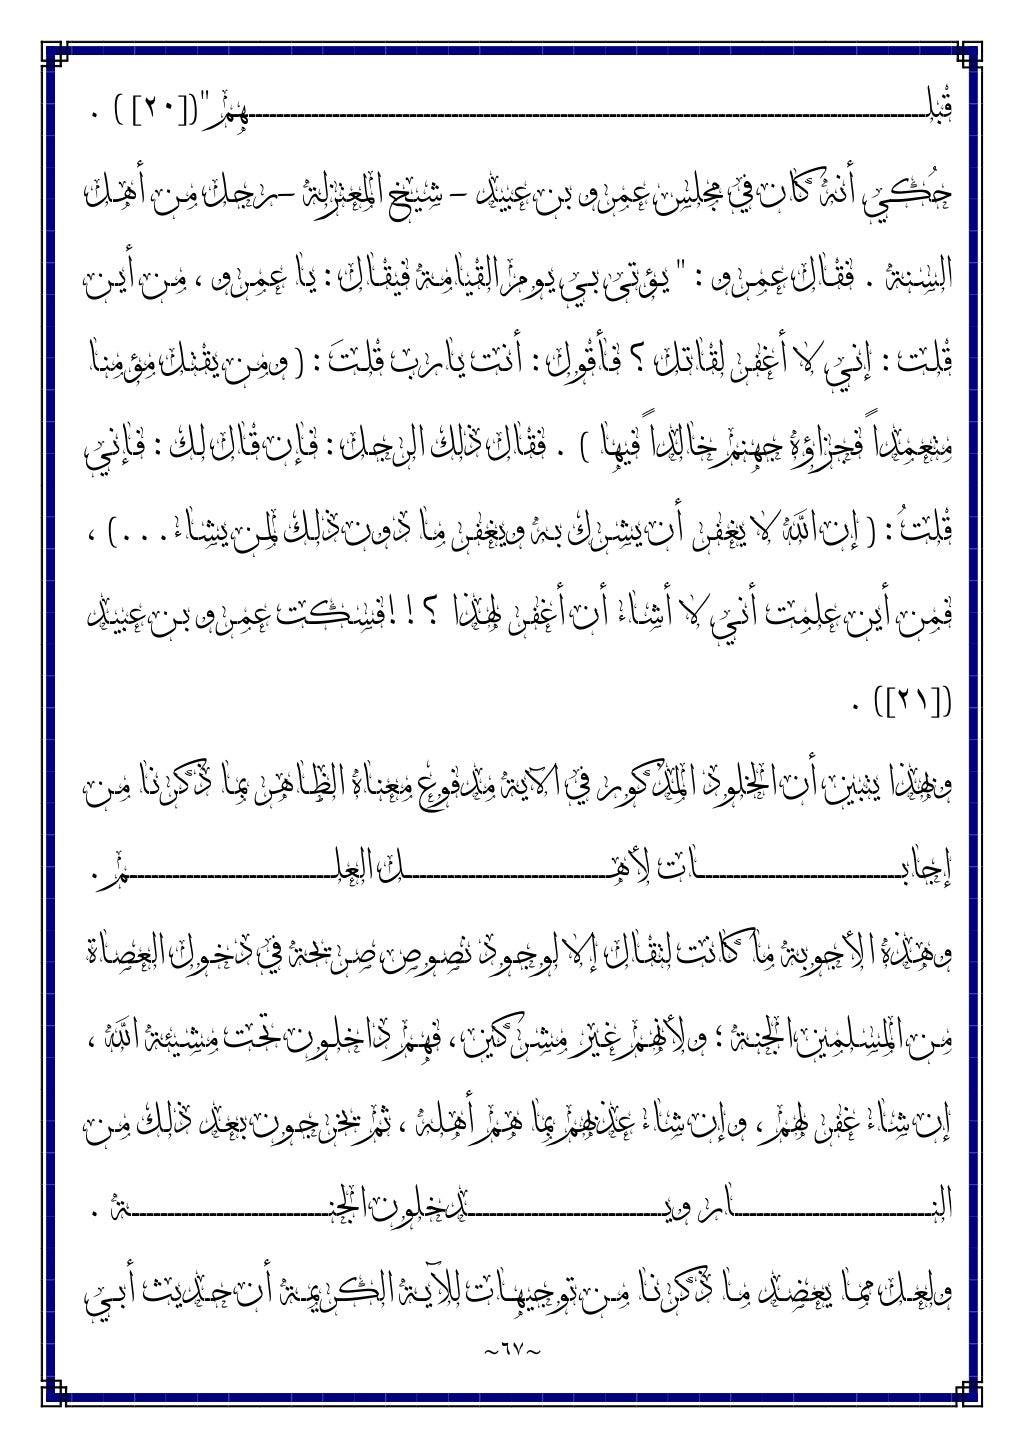 قبلهم"([٢٠]) .
حُكي أنه كان في مجلس عمرو بن عبيد – شيخ المعتزلة –رجل من أهل
السنة . فقال عمرو : " يؤتى بي يوم القيامة فيقال : يا عمرو ، من أين
قلت : إني لا أغفر لقاتل ؟ فأقول : أنت يارب قلتَ : ( ومن يقتل مؤمنا
متعمداً فجزاؤه جهنم خالداً فيها ) . فقال ذلك الرجل : فإن قال لك : فإني
قلتُ : ( إن الله لا يغفر أن يشرك به ويغفر ما دون ذلك لمن يشاء...) ،
فمن أين علمت أني لا أشاء أن أغفر لهذا ؟! !فسكت عمرو بن عبيد
([٢١]) .
وبهذا يتبين أن الخلود المذكور في الآية مدفوع معناه الظاهر بما ذكرنا من
إجابات لأهل العلم .
وهذه الأجوبة ما كانت لتقال إلا لوجود نصوص صريحة في دخول العصاة
من المسلمين الجنة ؛ ولأنهم غير مشركين، فهم داخلون تحت مشيئة الله ،
إن شاء غفر لهم ، وإن شاء عذبهم بما هم أهله ، ثم يخرجون بعد ذلك من
النار ويدخلون الجنة .
ولعل مما يعضد ما ذكرنا من توجيهات للآية الكريمة أن حديث أبي
~٦٧~